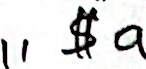 11 $ a